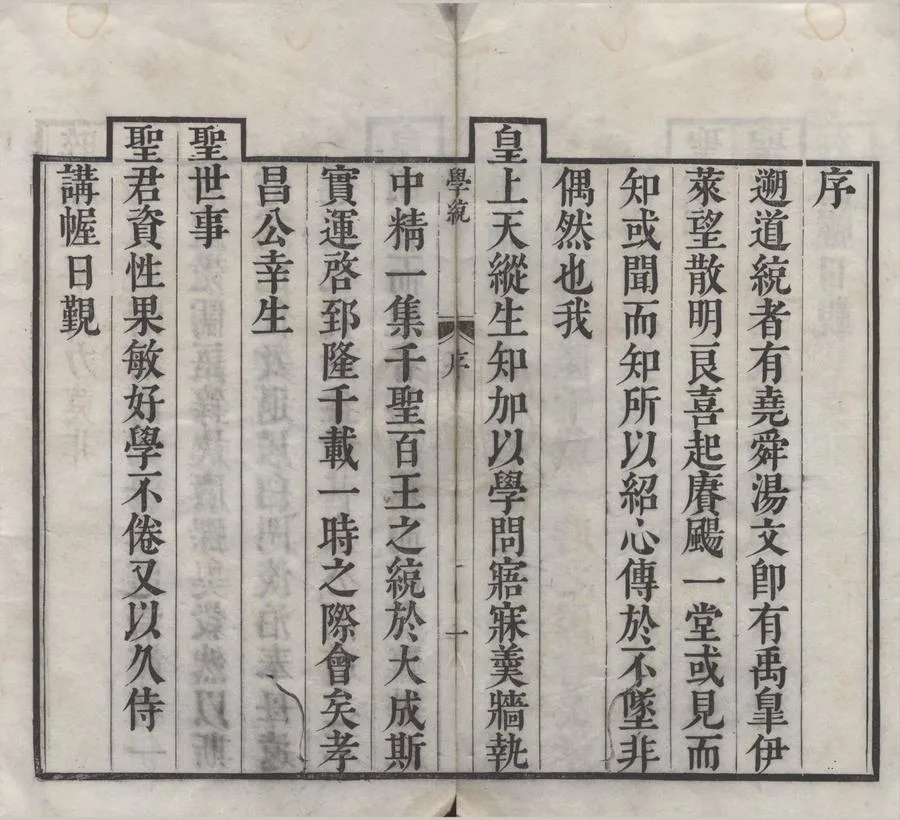 序
遡道統者有堯舜湯文卽有禹臯伊
萊望散明良喜起賡颺一堂或見而
知或聞而知所以紹心傳於不墜非
偶然也我
皇上天縱生知加以學問寤寐羹牆執
學統
序
一
中精一集千聖百王之統於大成斯
實運啓郅隆千載一時之際會矣孝
昌公幸生
聖世事
聖君資性果敏好學不倦又以久侍
講幄日覲